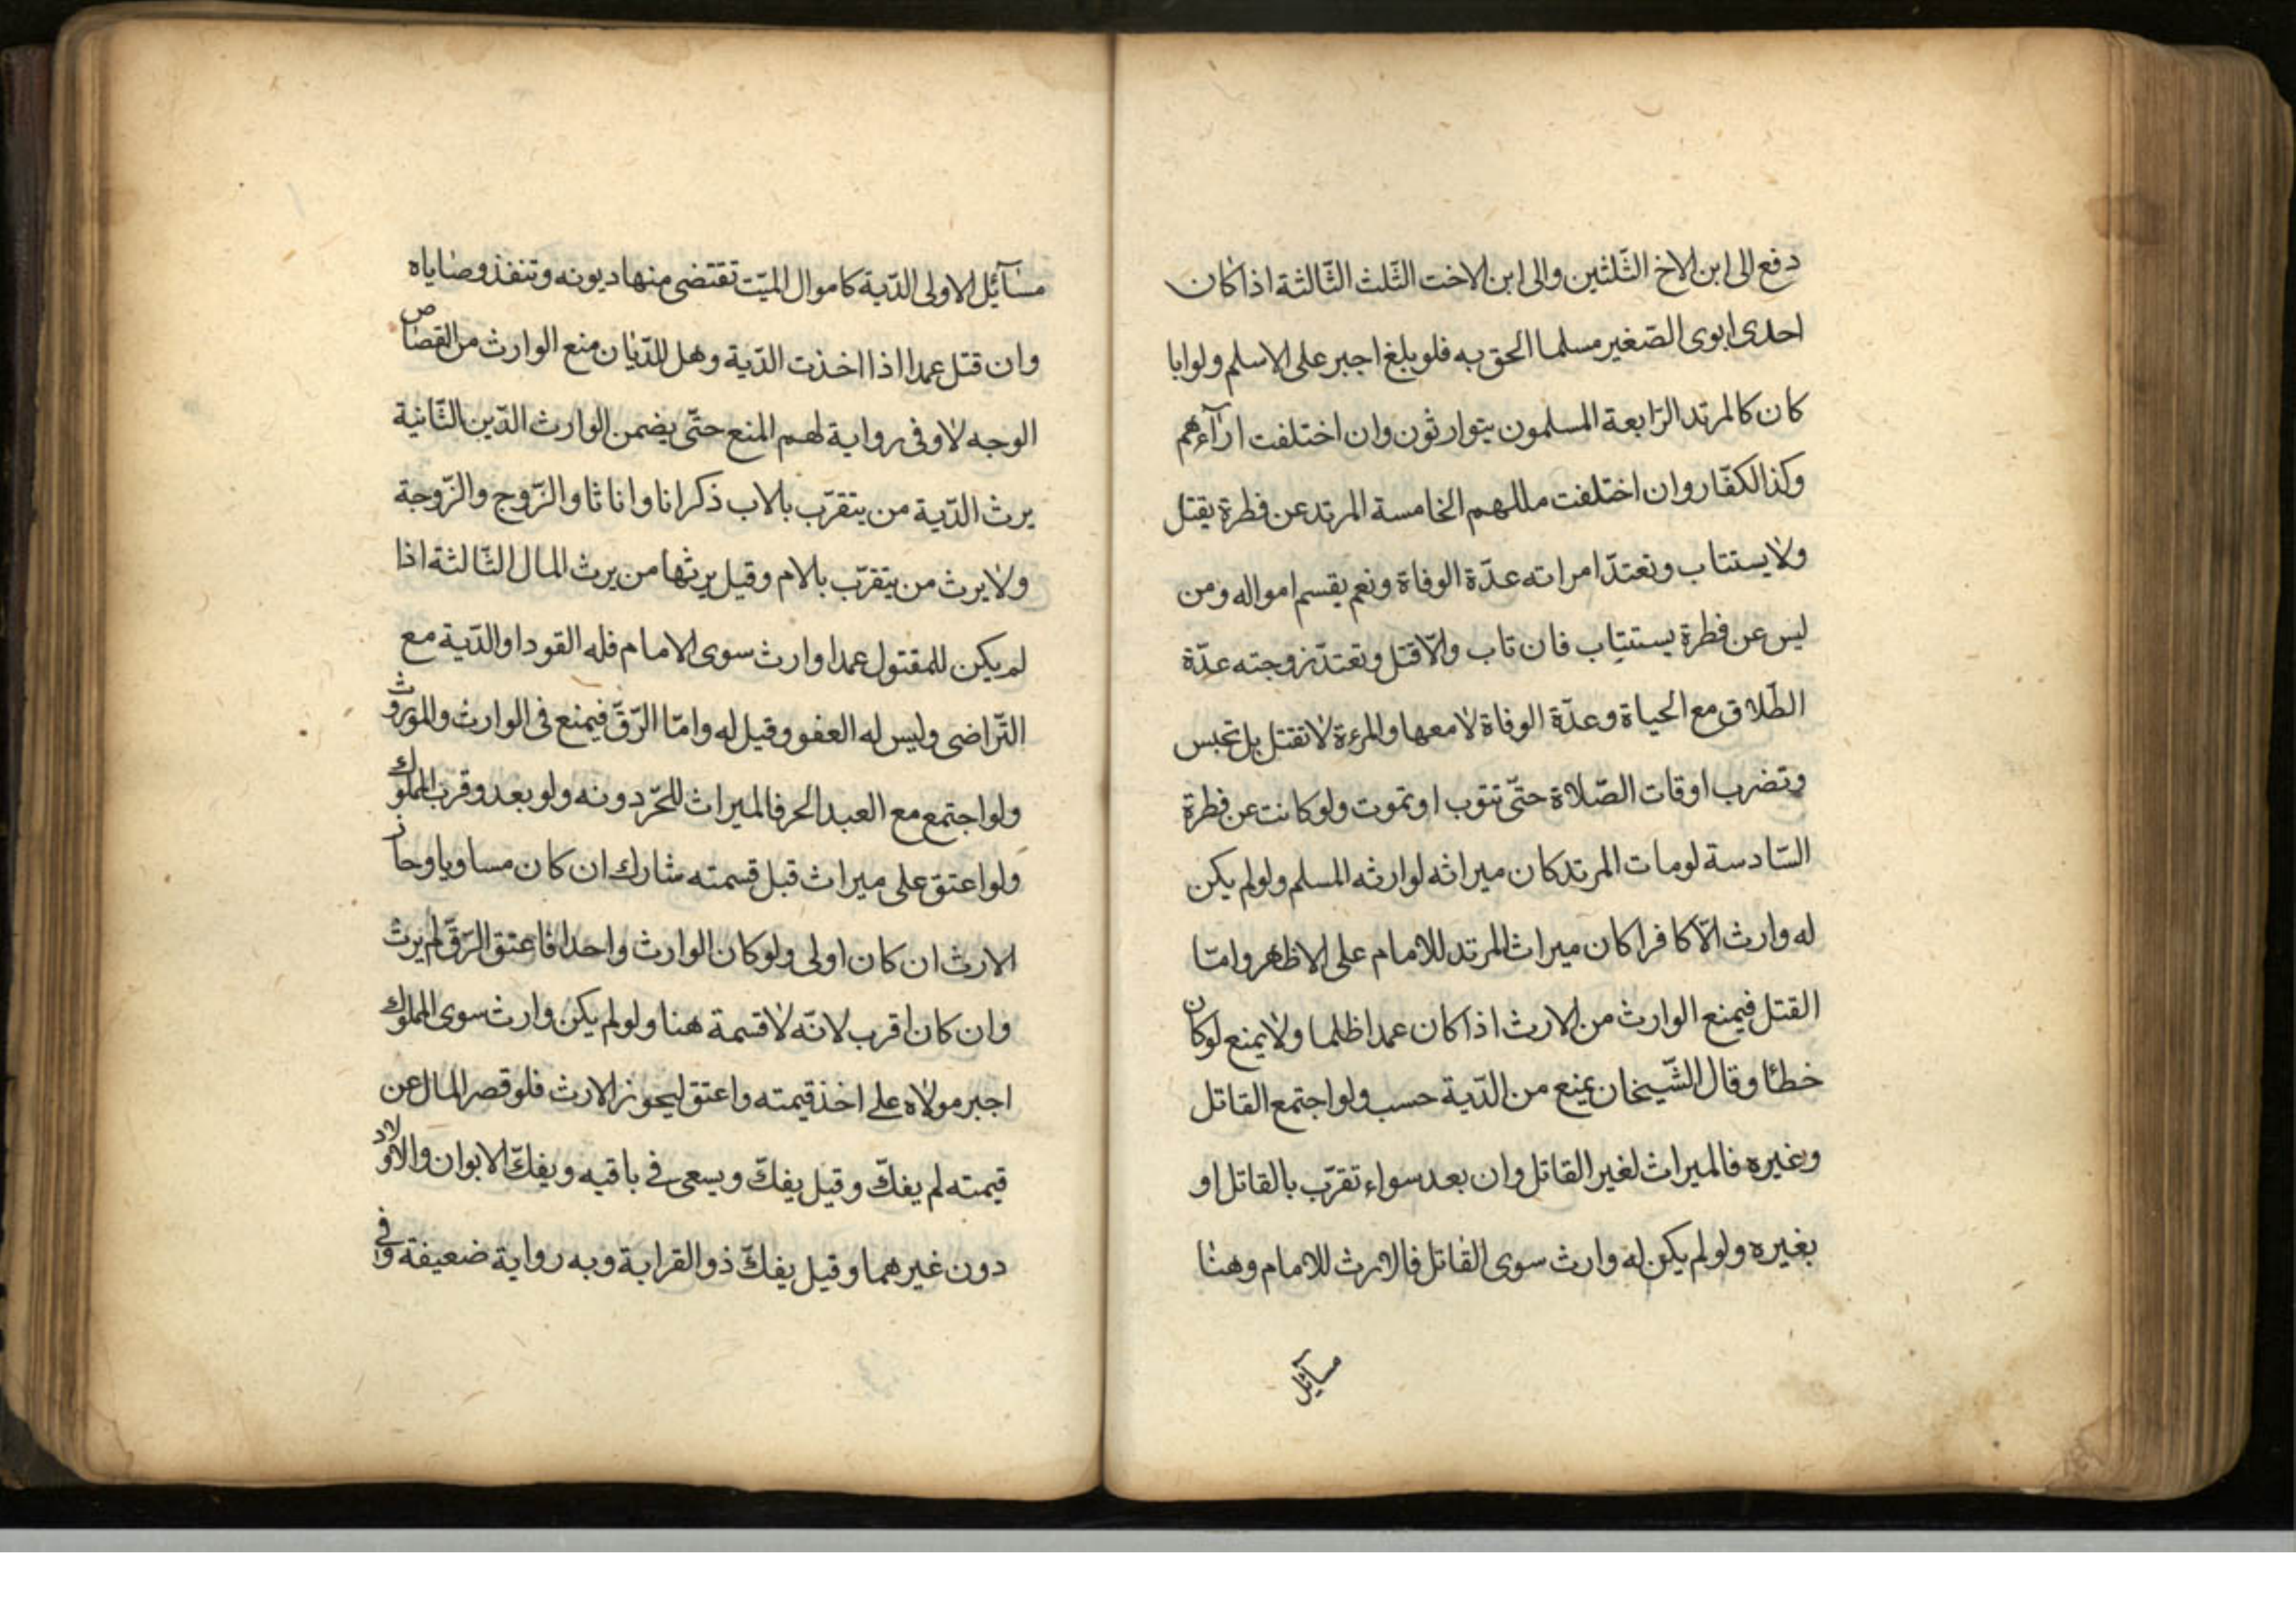 دفع الى ابن الاخ الثّلثين والى ابن الاخت الثّلث الثّالثة اذا كان
احدى ابوى الصّغير مسلما الحق به فلو بلغ اجبر على الاسلم ولو ابا
كان كالمرتد الرّابعة المسلمون يتوارثون وان اختلفت ارآءهم
وكذا الكفّار وان اختلفت مللهم الخامسة المرتد عن فطرة يقتل
ولا يستتاب وتعتدّ امراته عدّة الوفاة ونعم يقسم امواله ومن
ليس عن فطرة يستتاب فان تاب والّا قتل وتعتدّ زوجته عدّة
الطّلاق مع الحياة وعدّة الوفاة لا معها والمرءة لا تقتل بل تحبس
وتضرب اوقات الصّلاة حتّى تتوب او تموت ولو كانت عن فطرة
السّادسة لو مات المرتد كان ميراثه لوارثه المسلم ولو لم يكن
له وارث الّا كافرا كان ميراث المرتد للامام على الاظهر وامّا
القتل فيمنع الوارث من الارث اذا كان عمدا ظلما ولا يمنع لو كان
خطئا وقال الشّيخان يمنع من الدّية حسب ولو اجتمع القاتل
وغيره فالميراث لغير القاتل وان بعد سواء تقرّب بالقاتل او
بغيره ولو لم يكن له وارث سوى القاتل فالارث للامام وهنا
مسآئل
مسآئل الاولى الدّية كاموال الميّت تقتضى منها ديونه وتنفذ وصاياه
وان قتل عمدا اذا اخذت الدّية وهل للدّيان منع الوارث من القصاص
الوجه لا وفى رواية لهم المنع حتّى يضمن الوارث الدّين الثّانية
يرث الدّية من يتقرّب بالاب ذكرانا واناثا والزّوج والزّوجة
ولا يرث من يتقرّب بالام وقيل يرثها من يرث المال الثّالثة اذا
لم يكن للمقتول عمدا وارث سوى الامام فله القود او الدّية مع
التّراضى وليس له العفو وقيل له وامّا الرّقّ فيمنع فى الوارث والموروث
ولو اجتمع مع العبد الحر فالميراث للحّر دونه ولو بعد وقرب المملوك
ولو اعتق على ميراث قبل قسمته شارك ان كان مساويا وحاز
الارث ان كان اولى ولو كان الوارث واحدا فاعتق الرّقّ لم يرث
وان كان اقرب لانّه لا قسمة هنا ولو لم يكن وارث سوى المملوك
اجبر مولاه على اخذ قيمته واعتق ليحوز الارث فلو قصر المال عن
قيمته لم يفكّ وقيل يفكّ ويسعى فى باقيه ويفكّ الابوان والاولاد
دون غيرهما وقيل يفكّ ذو القرابة وبه رواية ضعيفة وفى